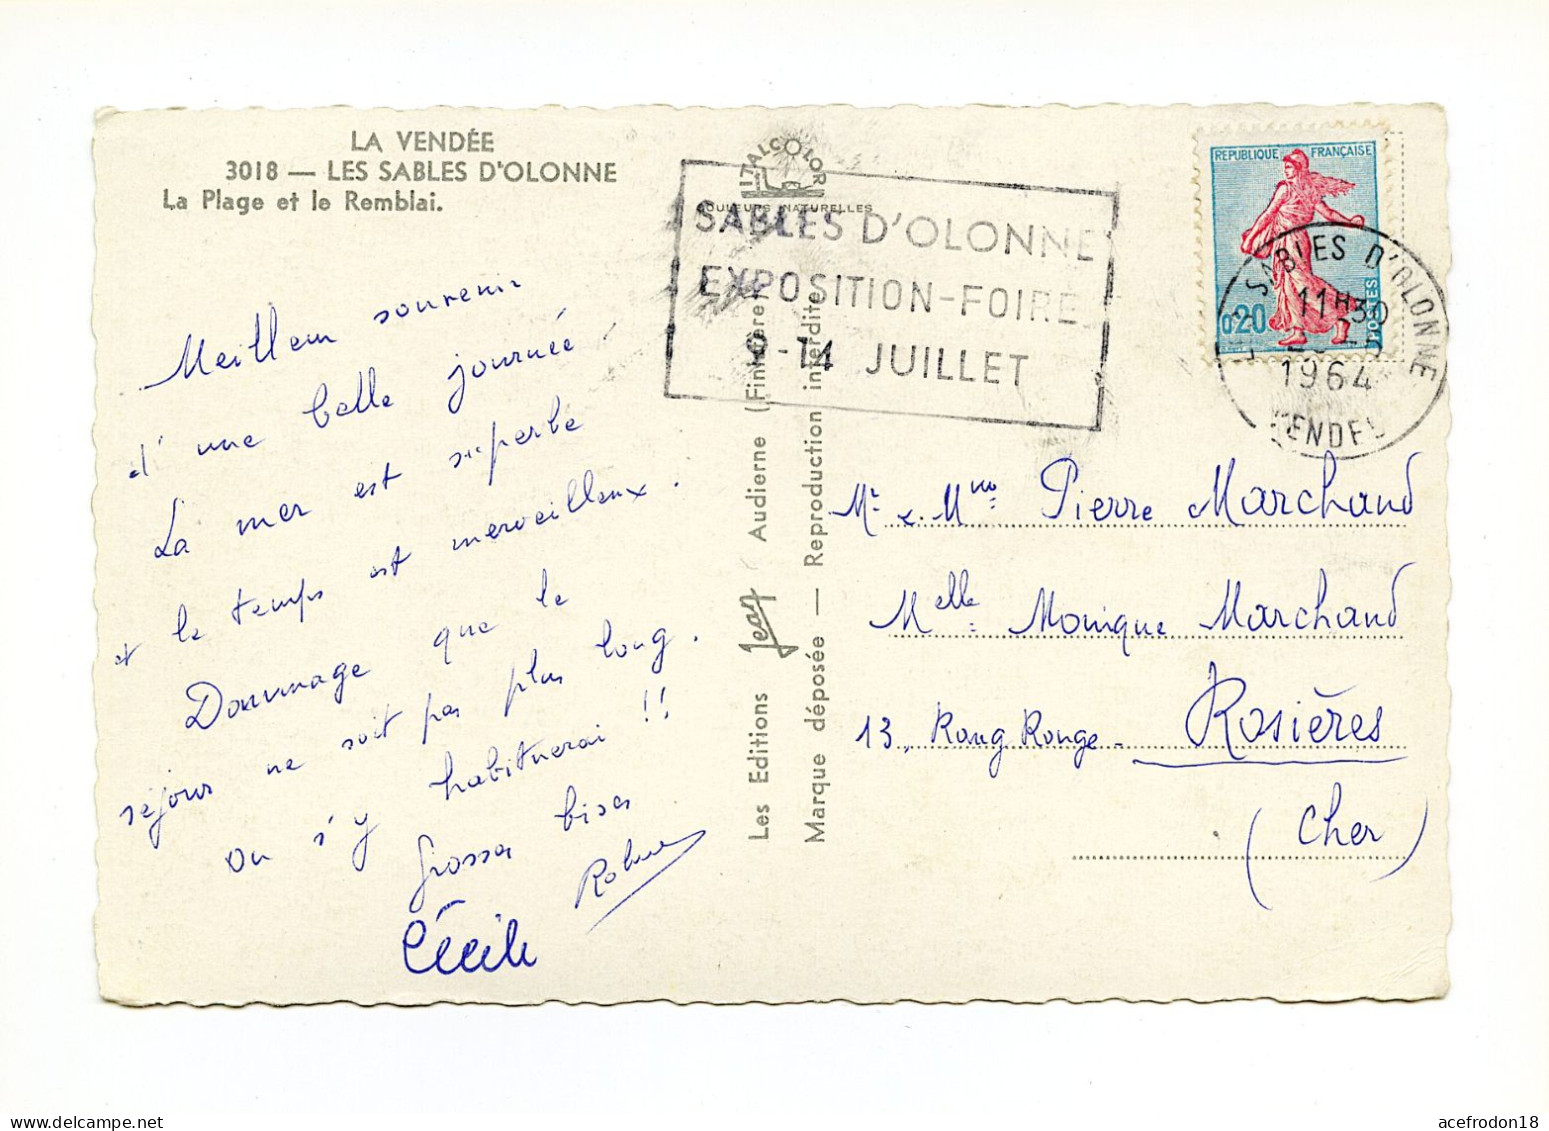 LA VENDÉE
3018 — LES SABLES D'OLONNE
La Plage et le Remblai.
Meilleur souvenir
d'une belle journée
La mer est superbe
et le temps est merveilleux.
Dommage que le
séjour ne soit pas plus long.
on s'y habituerai !!
Grosses bises
Cécile
ITALCOLOR
COULEURS NATURELLES
SABLES D'OLONNE
EXPOSITION-FOIRE
9-14 JUILLET
Les Editions Jean Audierne (Finistère)
Marque déposée — Reproduction interdite
REPUBLIQUE FRANÇAISE
0,20
POSTES
LES SABLES D'OLONNE
11H30
1964
VENDEE
Mr & Mme Pierre Marchand
Melle Monique Marchand
13, Rang Rouge - Rosières
(Cher)
acefrodon18